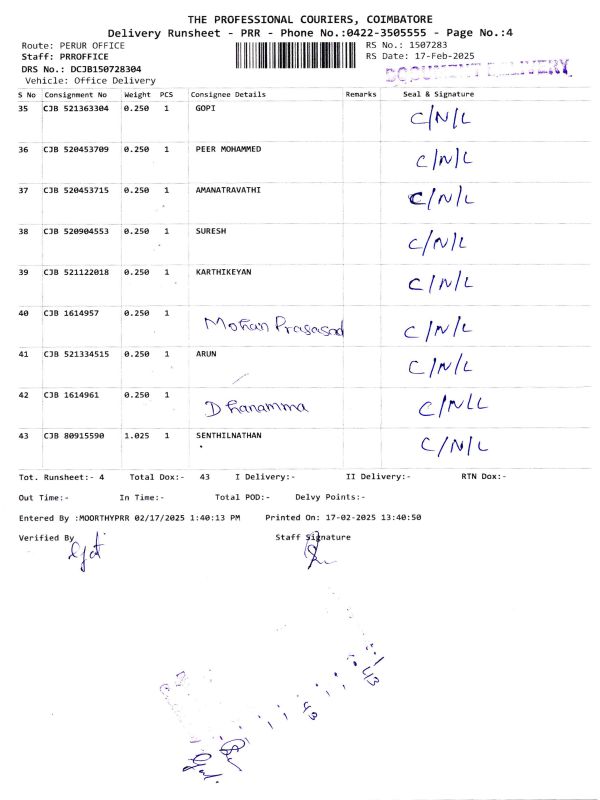 THE PROFESSIONAL COURIERS, COIMBATORE
Delivery Runsheet - PRR - Phone No.:0422-3505555 - Page No.:4
Route: PERUR OFFICE RS No.: 1507283
Staff: PRROFFICE RS Date: 17-Feb-2025
DRS No.: DCJB150728304 DOCUMENT DELIVERY
Vehicle: Office Delivery
S No Consignment No Weight PCS Consignee Details Remarks Seal & Signature
35 CJB 521363304 0.250 1 GOPI C/N/L
36 CJB 520453709 0.250 1 PEER MOHAMMED C/N/L
37 CJB 520453715 0.250 1 AMANATRAVATHI C/N/L
38 CJB 520904553 0.250 1 SURESH C/N/L
39 CJB 521122018 0.250 1 KARTHIKEYAN C/N/L
40 CJB 1614957 0.250 1 Mohan Prasasad C/N/L
41 CJB 521334515 0.250 1 ARUN C/N/L
42 CJB 1614961 0.250 1 Dhanamma C/NLL
43 CJB 80915590 1.025 1 SENTHILNATHAN C/N/L
Tot. Runsheet:- 4 Total Dox:- 43 I Delivery:- II Delivery:- RTN Dox:-
Out Time:- In Time:- Total POD:- Delvy Points:-
Entered By :MOORTHYPRR 02/17/2025 1:40:13 PM Printed On: 17-02-2025 13:40:50
Verified By Staff Signature
43
43